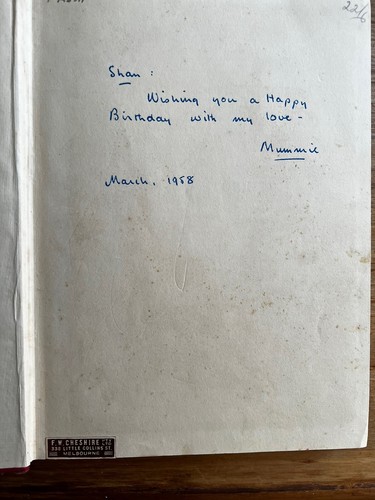 22/6
Shan :
Wishing you a Happy
Birthday with my love -
Mummie
March, 1958
F. W. CHESHIRE PTY. LTD.
338 LITTLE COLLINS ST.
MELBOURNE